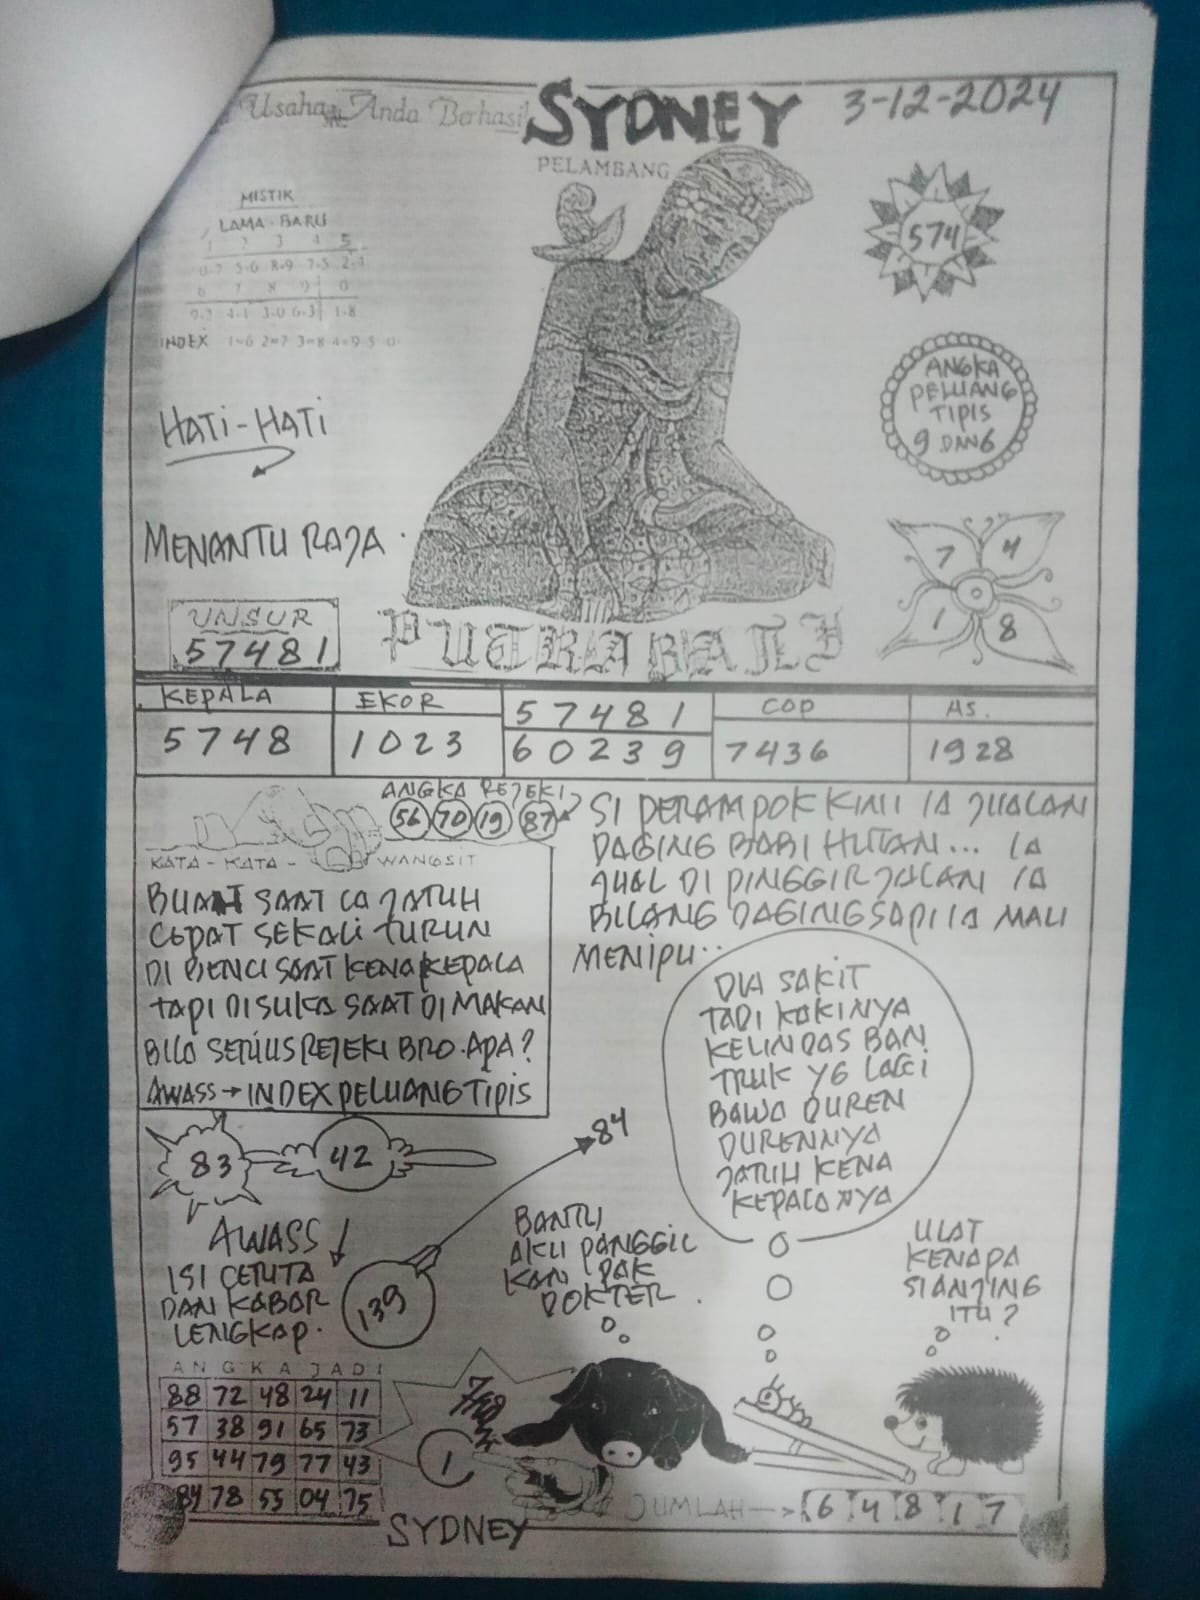 Usaha Anda Berhasil
SYDNEY
3-12-2024
PELAMBANG
MISTIK
LAMA - BARU
1 2 3 4 5
0-7 5-6 8-9 7-5 2-4
6 7 8 9 0
9-2 4-1 3-0 6-3 1-8
INDEX 1=6 2=7 3=8 4=9 5 0
574
ANGKA
PELUANG
TIPIS
9 DANG
HATI-HATI
MENANTU RAJA
7 4
1 8
UNSUR
57481
PUTRA BALI
KEPALA EKOR 57481 COP AS.
5748 1023 60239 7436 1928
ANGKA REJEKI
56 70 19 87
KATA - KATA - WANGSIT
BUAH SAAT IA JATUH
CEPAT SEKALI TURUN
DI BENCI SAAT KENA KEPALA
TAPI DI SUKA SAAT DI MAKAN
BILA SERIUS REJEKI BRO. APA?
AWASS → INDEX PELUANG TIPIS
SI PERAMPOK KINI IA JUALAN
DAGING BABI HUTAN... IA
JUAL DI PINGGIR JALAN IA
BILANG DAGING SAPI IA MAU
MENIPU..
DIA SAKIT
TADI KAKINYA
KELINDAS BAN
TRUK YG LAGI
BAWA DUREN
DURENNYA
JATUH KENA
KEPALANYA
83 42
84
AWASS
ISI CERITA
DAN KABAR
LENGKAP.
139
BANTU
AKU PANGGIL
KAN PAK
DOKTER.
ULAT
KENAPA
SI ANJING
ITU?
ANGKA JADI
88 72 48 24 11
57 38 91 65 73
95 44 79 77 43
84 78 55 04 75
1
JUMLAH → 6 4 8 1 7
SYDNEY